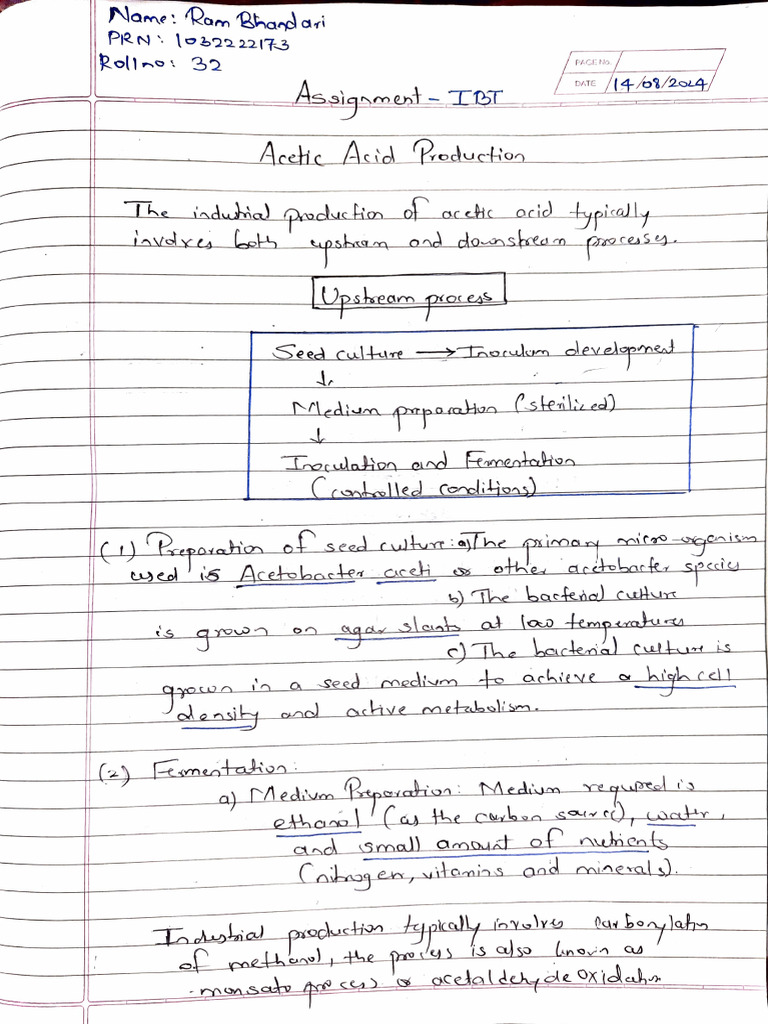 Name: Ram Bhandari
PRN: 1032222173
Roll no: 32
PAGE No.
DATE 14/08/2024
Assignment - IBT
Acetic Acid Production
The industrial production of acetic acid typically
involves both upstream and downstream processes.
Upstream process
Seed culture → Inoculum development
↓
Medium preparation (sterilized)
↓
Inoculation and Fermentation
(controlled conditions)
(1) Preparation of seed culture: a) The primary micro-organism
used is Acetobacter aceti or other acetobacter species
b) The bacterial culture
is grown on agar slants at low temperatures
c) The bacterial culture is
grown in a seed medium to achieve a high cell
density and active metabolism.
(2) Fermentation:
a) Medium Preparation: Medium required is
ethanol (as the carbon source), water,
and small amount of nutrients
(nitrogen, vitamins and minerals).
Industrial production typically involves carbonylation
of methanol, the process is also known as
monsato process or acetaldehyde oxidation